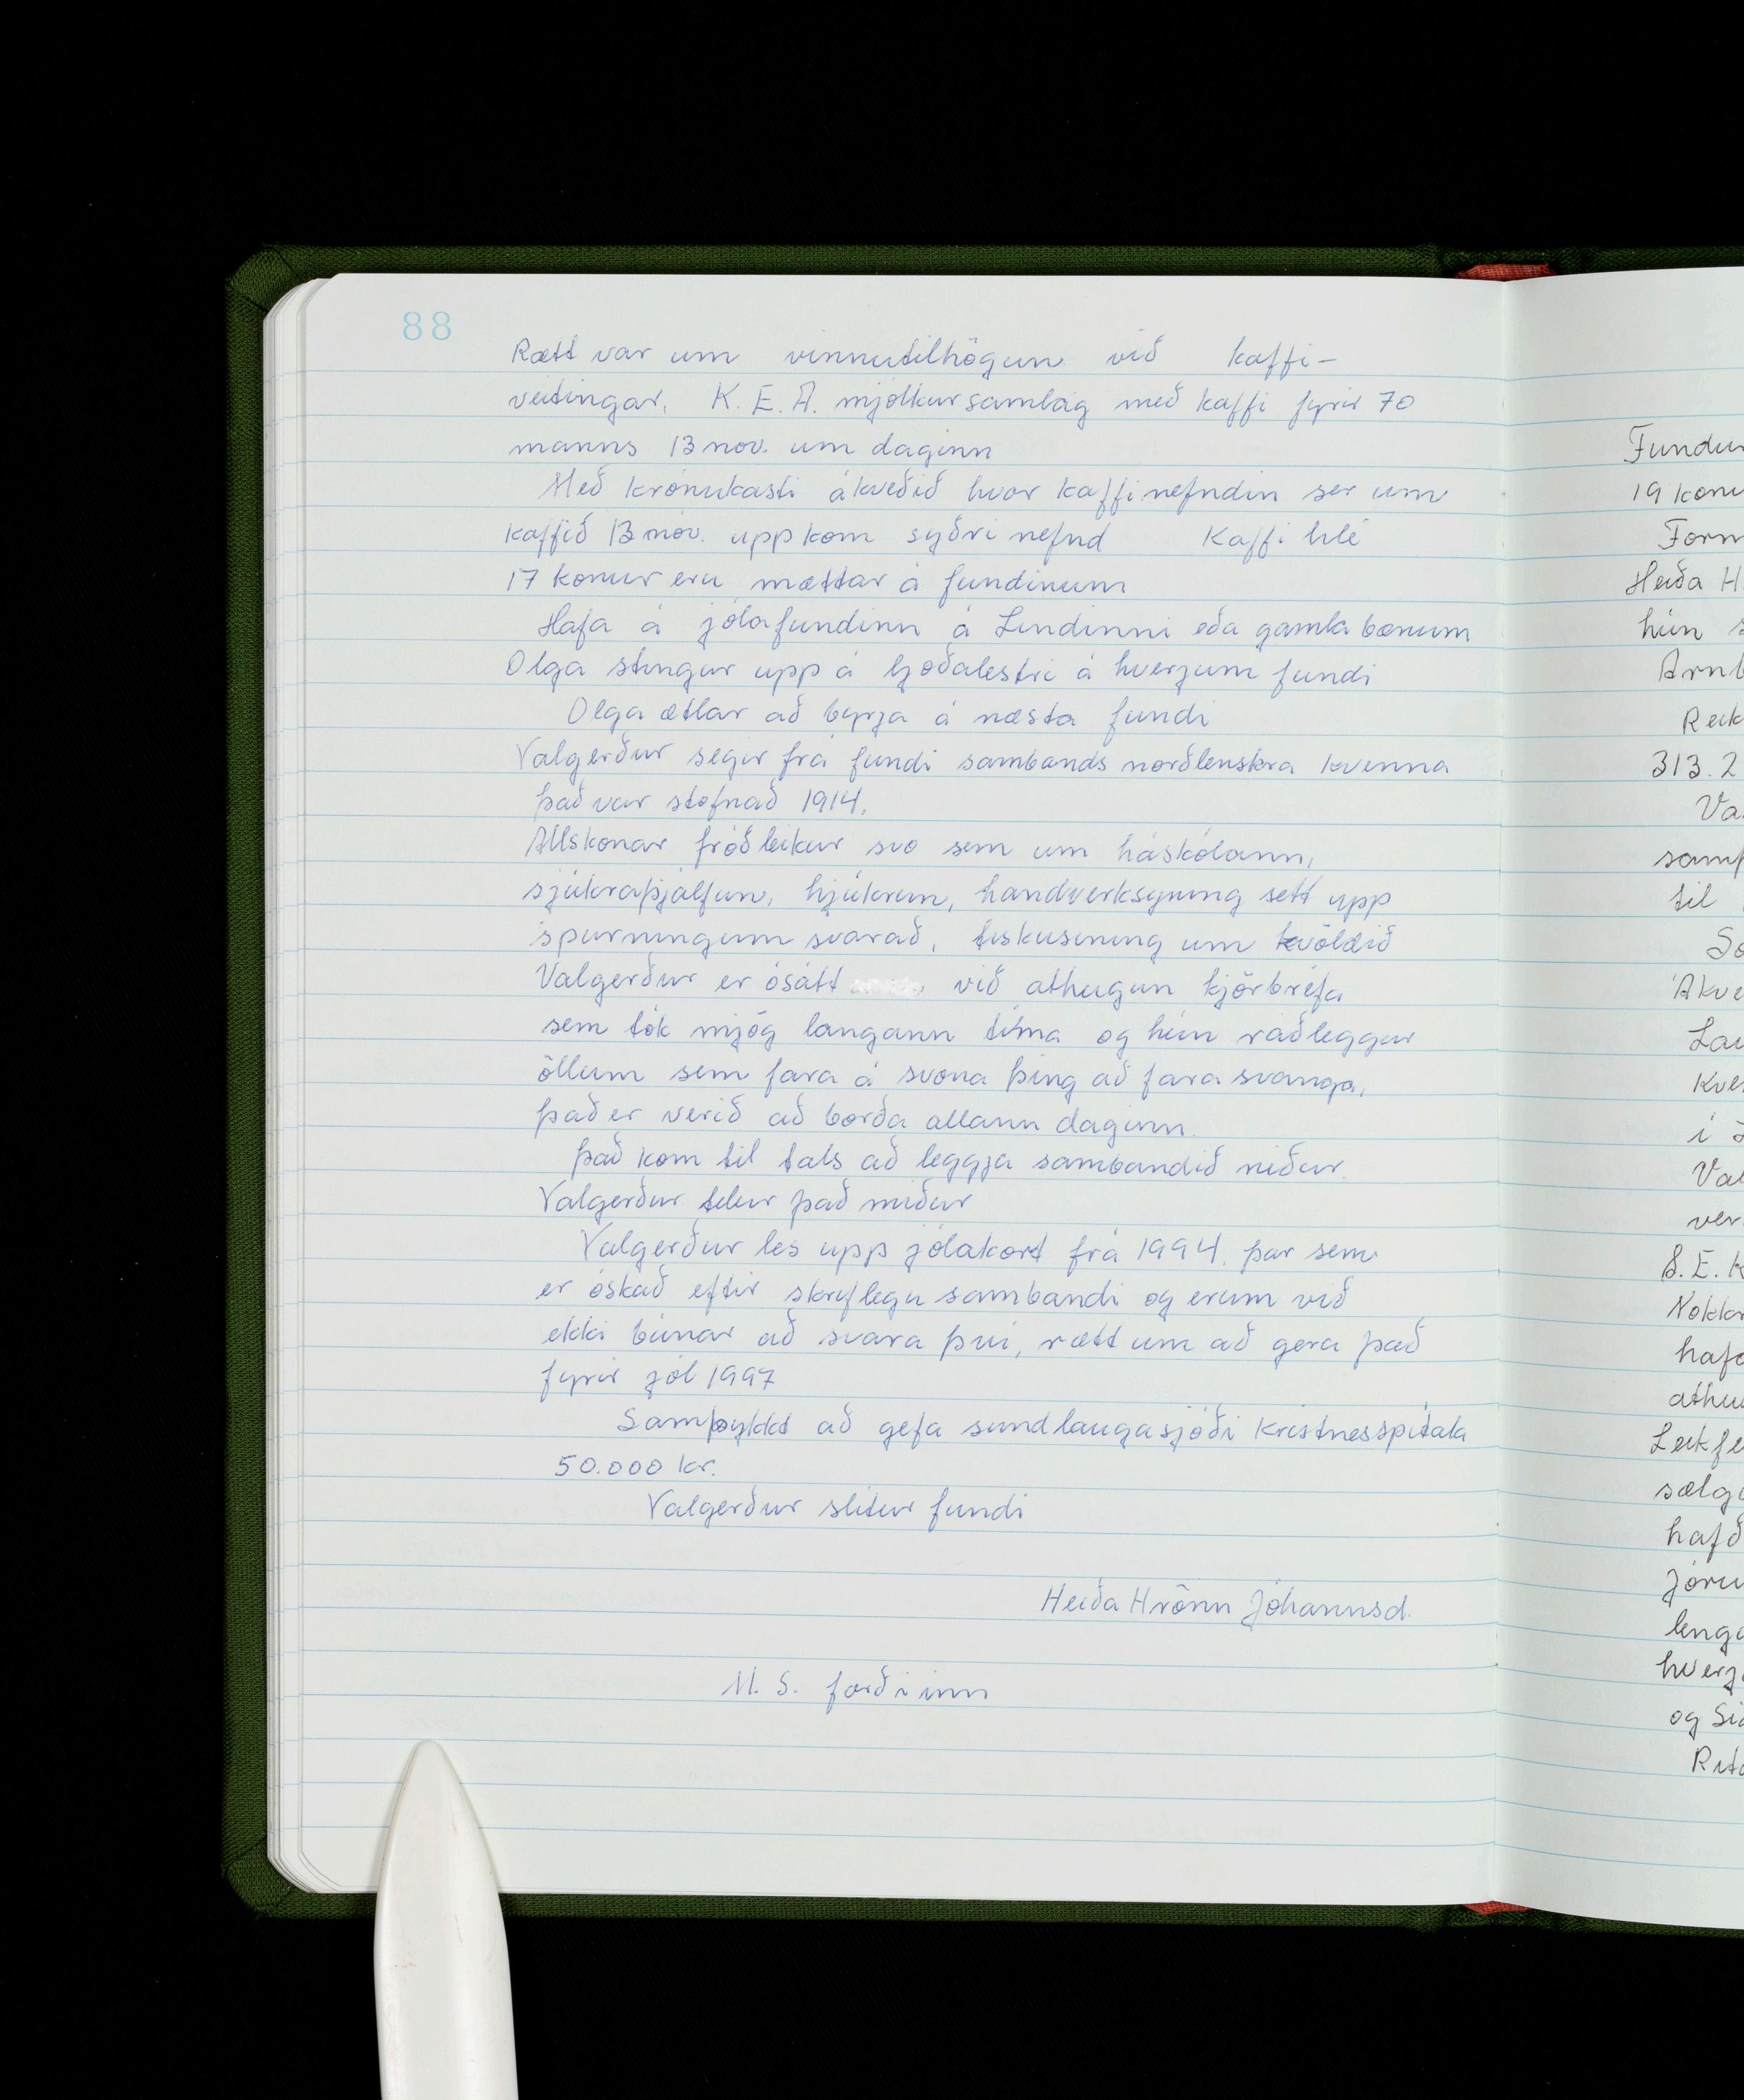 88
Rætt var um vinnutilhögun við kaffi-
veitingar. K.E.A. mjólkursamlag með kaffi fyrir 70
manns 13 nov. um daginn
Með krónukasti ákveðið hvor kaffinefndin sér um
kaffið 13 nóv. upp kom syðri nefnd Kaffi hlé
17 konur eru mættar á fundinum
Hafa á jólafundinn á Lindinni eða gamla bænum
Olga stingur upp á ljóðalestri á hverjum fundi
Olga ætlar að byrja á næsta fundi
Valgerður segir frá fundi sambands norðlenskra kvenna
það var stofnað 1914.
Allskonar fróðleikur svo sem um háskólann,
sjúkraþjálfun, hjúkrun, handverksýning sett upp
spurningum svarað, tískusining um kvöldið
Valgerður er ósátt við athugun kjörbréfa
sem tók mjög langann tíma og hún ráðleggur
öllum sem fara á svona þing að fara svanga,
það er verið að borða allann daginn.
Það kom til tals að leggja sambandið niður.
Valgerður telur það miður
Valgerður les upp jólakort frá 1994. þar sem
er óskað eftir skriflegu sambandi og erum við
ekki búnar að svara því, rætt um að gera það
fyrir jól 1997
Samþykkt að gefa sundlaugasjóði Kristnesspítala
50.000 kr.
Valgerður slítur fundi
Heiða Hrönn Jóhannsd.
M.S. færði inn
Fundur
19 konu
Form
Heiða H
hún s
Arnb
Reik
313.2
Va
samþ
til
So
Ákve
Lau
Kve
í
Val
ver
S.E.K
Nokkr
hafa
athu
Leikfé
sælg
hafð
Jóru
leng
hverj
og Si
Rita